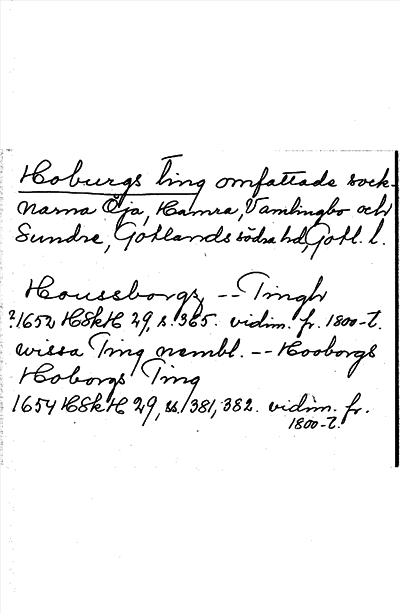 Hoburgs Ting omfattade sock-
narna Öja, Hamra, Vamlingbo och
Sundre, Gotlands södra hd, Gotl. l.
Houssborgz -- Tingh
?1652 HSkH 29, s. 365. vidim. fr. 1800-t.
wissa Ting nembl. -- Hooborgs
Hoborgs Ting
1654 HSkH 29, ss. 381, 382. vidim. fr.
1800-t.